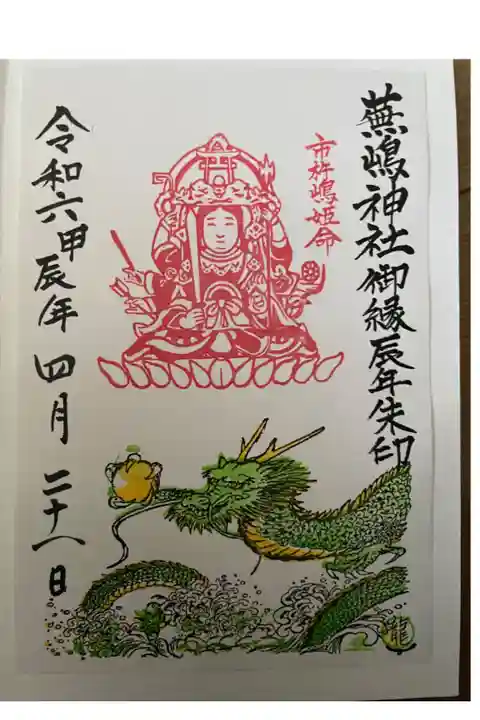 蕪嶋神社御縁辰年朱印
市杵嶋姫命
令和六甲辰年 四月 二十一日
龍